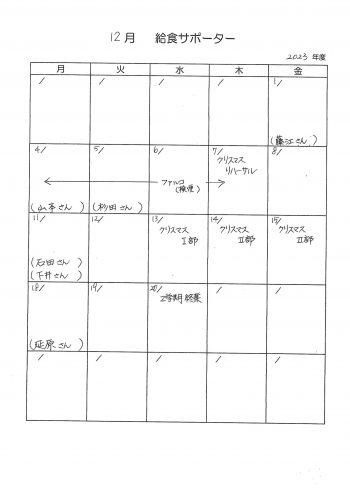 12月 給食サポーター
2023 年度
月 火 水 木 金
/ / / / 1/
(藤江さん)
4/ 5/ 6/ 7/ 8/
クリスマス
リハーサル
ファルコ
(検便)
(山本さん) (杉田さん)
11/ 12/ 13/ 14/ 15/
クリスマス クリスマス クリスマス
I部 II部 II部
(石田さん)
(下井さん)
18/ 19/ 20/ / /
2学期終業
(延原さん)
/ / / / /